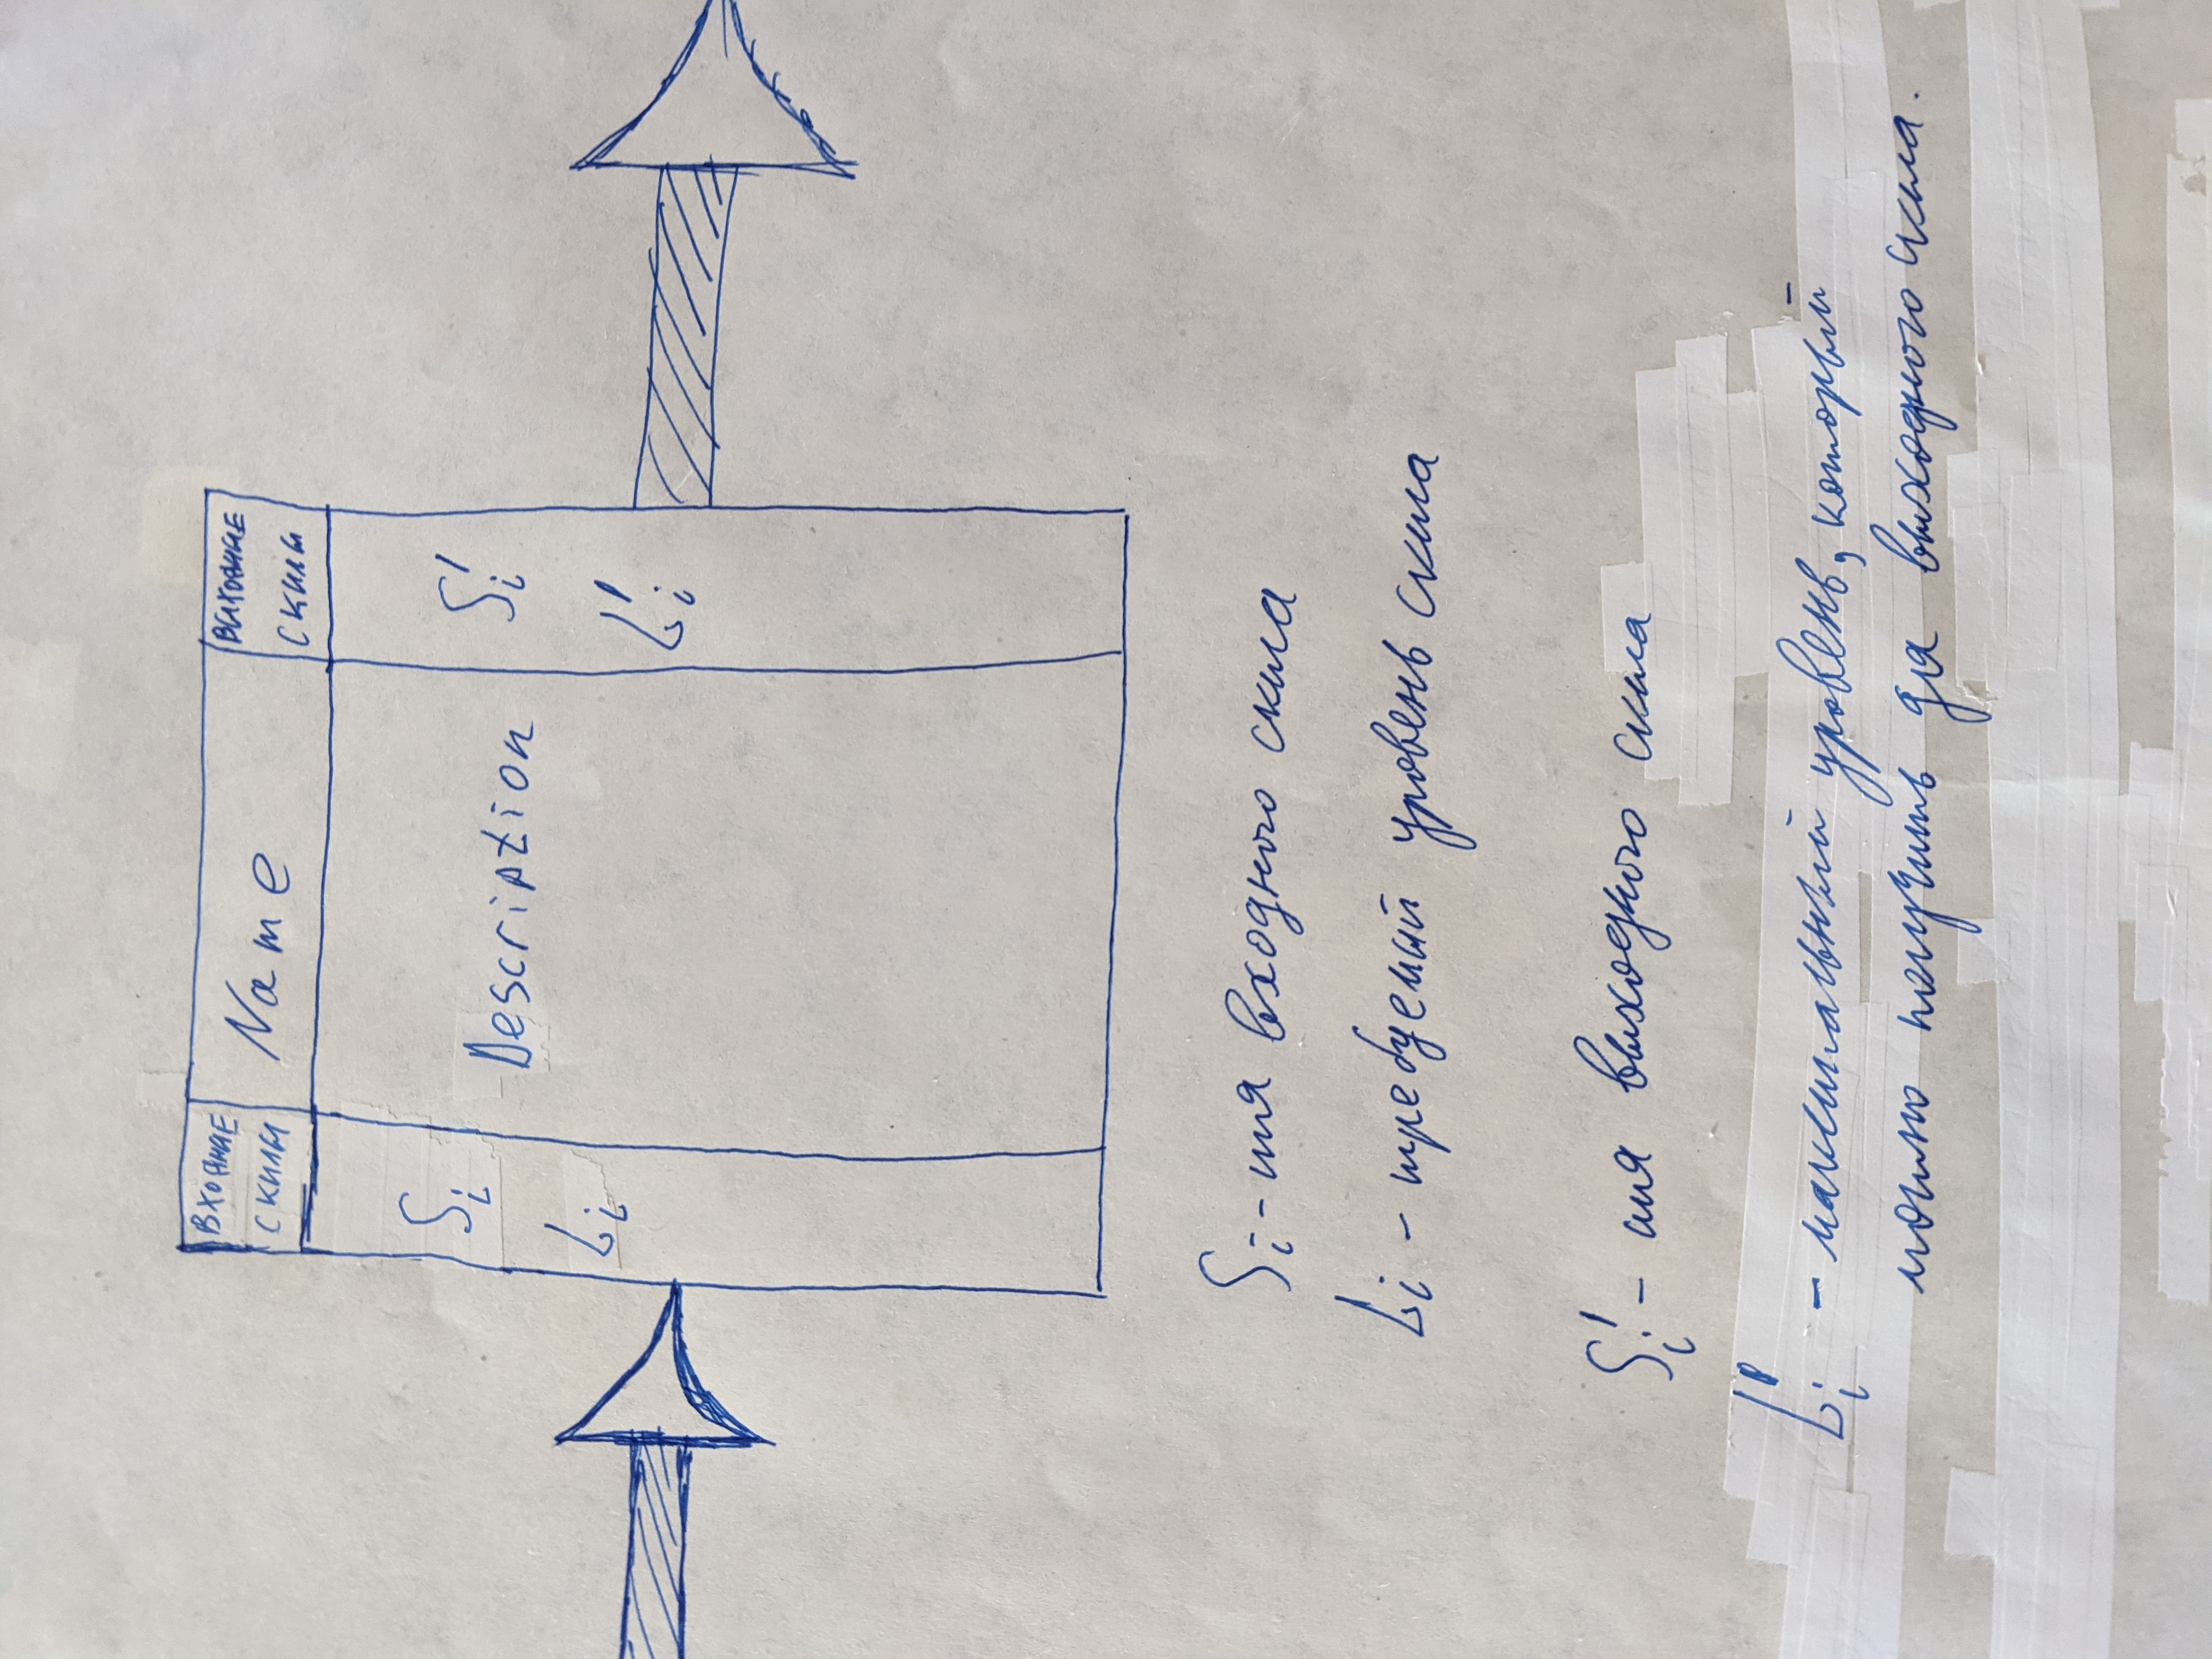 ВХОДНЫЕ
СКИЛЫ
Name
ВЫХОДНЫЕ
СКИЛЫ
Si
Li
Description
S'i
L'i
Si - имя входного скила
Li - требуемый уровень скила
S'i - имя выходного скила
L'i - максимальный уровень, который
можно получить дла выходного скила.